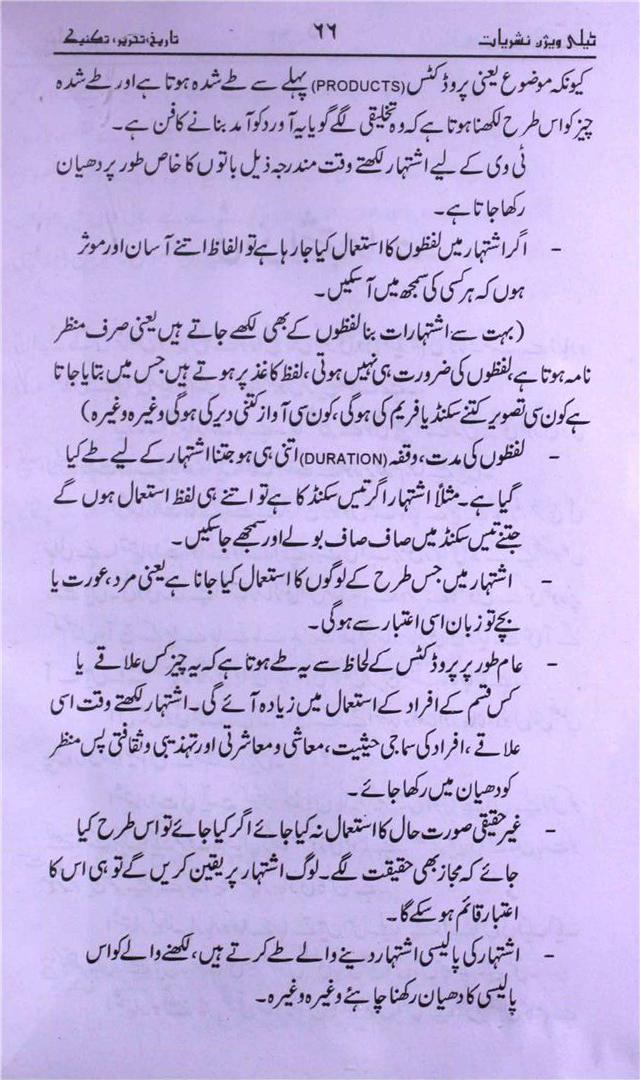 ٹیلی ویژن نشریات ۶۶ تاریخ، تحریر، تکنیک
کیونکہ موضوع یعنی پروڈکٹس (PRODUCTS) پہلے سے طے شدہ ہوتا ہے اور طے شدہ
چیز کو اس طرح لکھنا ہوتا ہے کہ وہ تخلیقی لگے گویا یہ آورد کو آمد بنانے کا فن ہے۔
ٹی وی کے لیے اشتہار لکھتے وقت مندرجہ ذیل باتوں کا خاص طور پر دھیان
رکھا جاتا ہے۔
- اگر اشتہار میں لفظوں کا استعمال کیا جا رہا ہے تو الفاظ اتنے آسان اور موثر
ہوں کہ ہر کسی کی سمجھ میں آ سکیں۔
(بہت سے اشتہارات بنا لفظوں کے بھی لکھے جاتے ہیں یعنی صرف منظر
نامہ ہوتا ہے، لفظوں کی ضرورت ہی نہیں ہوتی، لفظ کاغذ پر ہوتے ہیں جس میں بتایا جاتا
ہے کون سی تصویر کتنے سکنڈ یا فریم کی ہوگی، کون سی آواز کتنی دیر کی ہوگی وغیرہ وغیرہ)
- لفظوں کی مدت، وقفہ (DURATION) اتنی ہی ہو جتنا اشتہار کے لیے طے کیا
گیا ہے۔ مثلاً اشتہار اگر تیس سکنڈ کا ہے تو اتنے ہی لفظ استعمال ہوں گے
جتنے تیس سکنڈ میں صاف صاف بولے اور سمجھے جاسکیں۔
- اشتہار میں جس طرح کے لوگوں کا استعمال کیا جانا ہے یعنی مرد، عورت یا
بچے تو زبان اسی اعتبار سے ہوگی۔
- عام طور پر پروڈکٹس کے لحاظ سے یہ طے ہوتا ہے کہ یہ چیز کس علاقے یا
کس قسم کے افراد کے استعمال میں زیادہ آئے گی۔ اشتہار لکھتے وقت اسی
علاقے، افراد کی سماجی حیثیت، معاشی و معاشرتی اور تہذیبی و ثقافتی پس منظر
کو دھیان میں رکھا جائے۔
- غیر حقیقی صورت حال کا استعمال نہ کیا جائے اگر کیا جائے تو اس طرح کیا
جائے کہ مجاز بھی حقیقت لگے۔ لوگ اشتہار پر یقین کریں گے تو ہی اس کا
اعتبار قائم ہو سکے گا۔
- اشتہار کی پالیسی اشتہار دینے والے طے کرتے ہیں، لکھنے والے کو اس
پالیسی کا دھیان رکھنا چاہئے وغیرہ وغیرہ۔